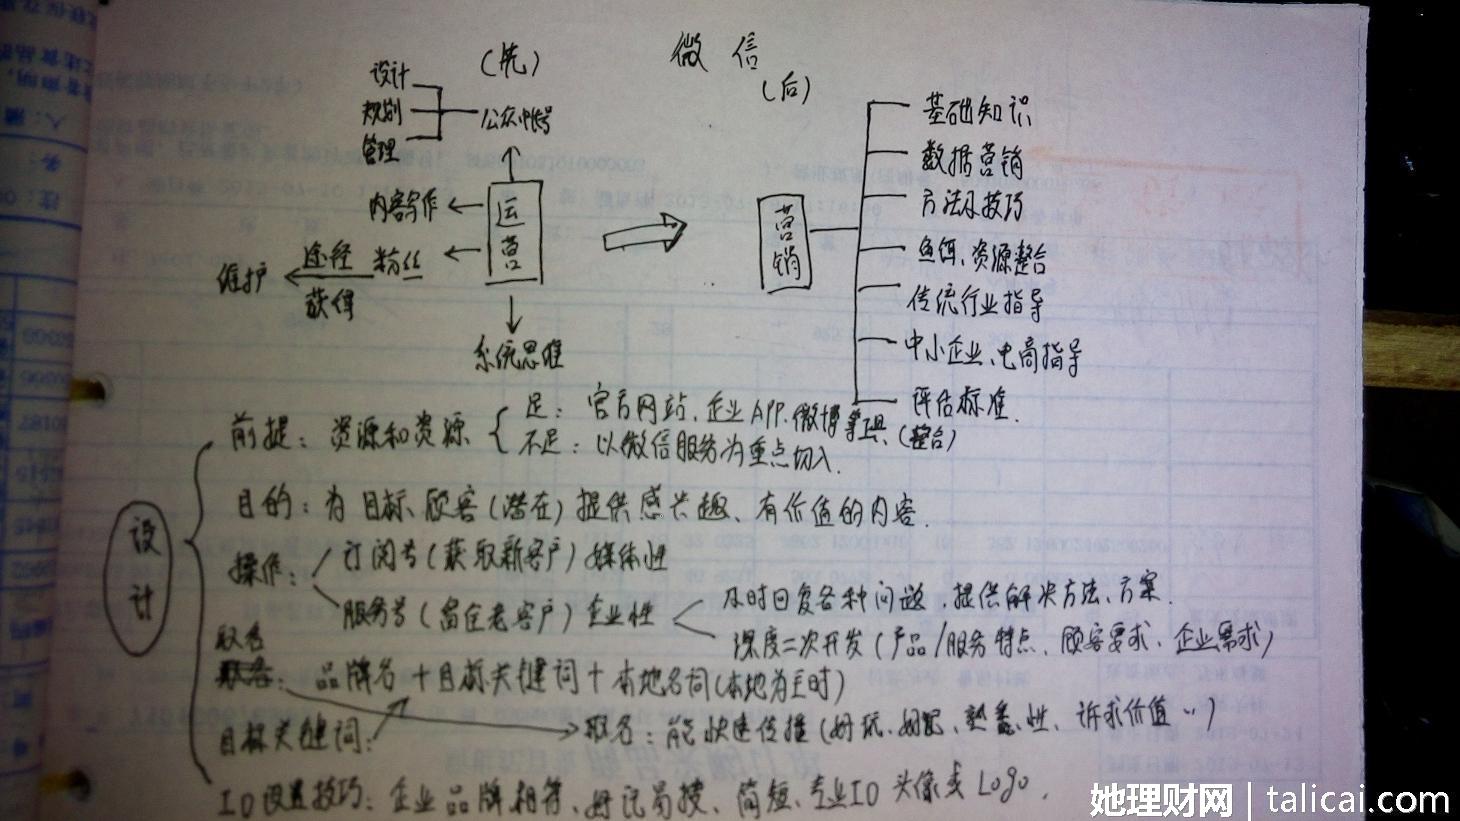 微信
(先)
(后)
设计
规划
管理
公众帐号
内容写作
运营
粉丝
途径
获得
维护
系统思维
营销
基础知识
数据营销
方法及技巧
鱼饵、资源整合
传统行业指导
中小企业、电商指导
评估标准.
设计
前提: 资源和资源
足: 官方网站、企业APP、微博等工具、(整合)
不足: 以微信服务为重点切入.
目的: 为目标、顾客(潜在)提供感兴趣、有价值的内容.
操作:
订阅号(获取新客户)媒体性
服务号(留住老客户)企业性
及时回复各种问题、提供解决方法、方案.
深度二次开发(产品/服务特点、顾客要求、企业需求)
取名
: 品牌名+目标关键词+本地名词(本地为主时)
目标关键词:
取名: 能快速传播(好玩、好记、熟悉性、诉求价值..)
ID设置技巧: 企业品牌相符、好记易搜、简短、专业ID 头像或Logo.
她理财网|talicai.com